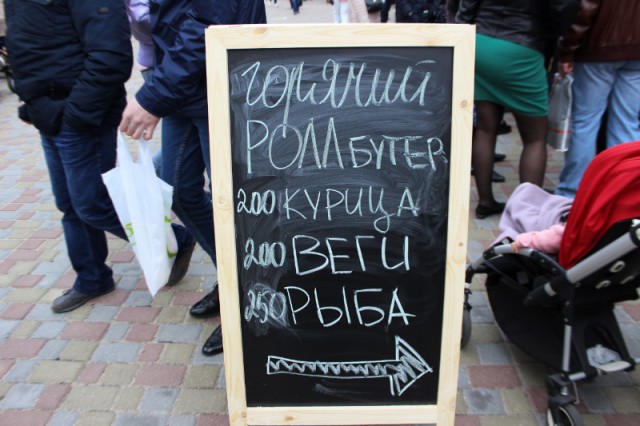 ГОРЯЧИЙ
РОЛЛБУТЕР
200 КУРИЦА
200 ВЕГИ
250 РЫБА